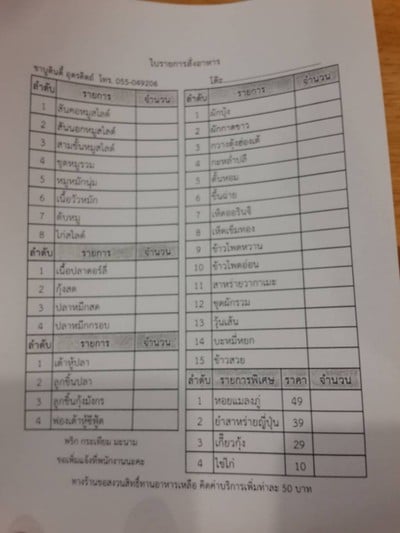 ใบรายการสั่งอาหาร
ชาบูตินตี้ อุตรดิตถ์ โทร. 055-049206
โต๊ะ
ลำดับ รายการ จำนวน
1 สันคอหมูสไลด์
2 สันนอกหมูสไลด์
3 สามชั้นหมูสไลด์
4 ชุดหมูรวม
5 หมูหมักนุ่ม
6 เนื้อวัวหมัก
7 ตับหมู
8 ไก่สไลด์
ลำดับ รายการ จำนวน
1 เนื้อปลาดอร์ลี่
2 กุ้งสด
3 ปลาหมึกสด
4 ปลาหมึกกรอบ
ลำดับ รายการ จำนวน
1 เต้าหู้ปลา
2 ลูกชิ้นปลา
3 ลูกชิ้นกุ้งมังกร
4 ฟองเต้าหู้ซีฟู้ด
พริก กระเทียม มะนาม
ขอเพิ่มแจ้งที่พนักงานนะคะ
ลำดับ รายการ จำนวน
1 ผักบุ้ง
2 ผักกาดขาว
3 กวางตุ้งฮ่องเต้
4 กะหล่ำปลี
5 ต้นหอม
6 ขึ้นฉ่าย
7 เห็ดออรินจิ
8 เห็ดเข็มทอง
9 ข้าวโพดหวาน
10 ข้าวโพดอ่อน
11 สาหร่ายวากาเมะ
12 ชุดผักรวม
13 วุ้นเส้น
14 บะหมี่หยก
15 ข้าวสวย
ลำดับ รายการพิเศษ ราคา จำนวน
1 หอยแมลงภู่ 49
2 ยำสาหร่ายญี่ปุ่น 39
3 เกี๊ยวกุ้ง 29
4 ไข่ไก่ 10
ทางร้านขอสงวนสิทธิ์ทานอาหารเหลือ คิดค่าบริการเพิ่มท่าละ 50 บาท